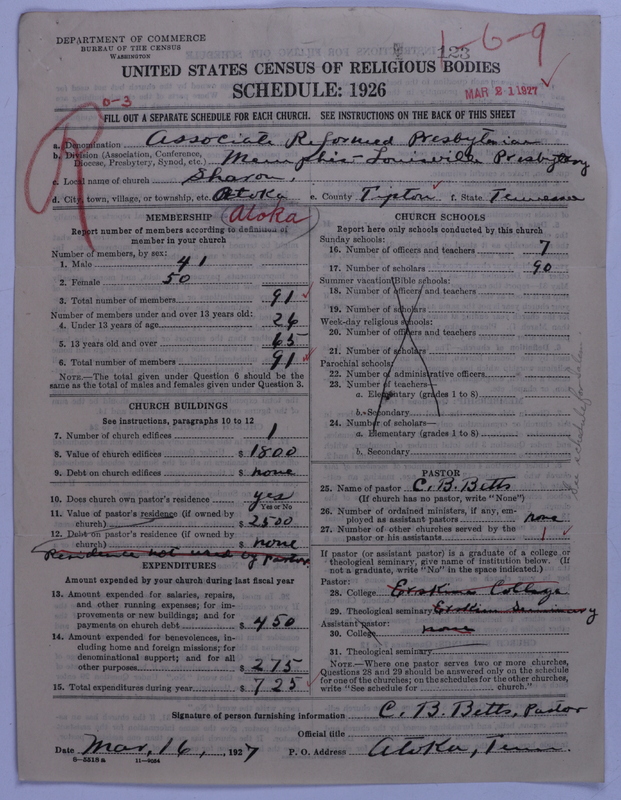 DEPARTMENT OF COMMERCE
BUREAU OF THE CENSUS
WASHINGTON
123
1-6-9
UNITED STATES CENSUS OF RELIGIOUS BODIES
SCHEDULE: 1926
MAR 21 1927
0-3
FILL OUT A SEPARATE SCHEDULE FOR EACH CHURCH. SEE INSTRUCTIONS ON THE BACK OF THIS SHEET
a. Denomination Associate Reformed Presbyterian
b. Division (Association, Conference, Diocese, Presbytery, Synod, etc.) Memphis-Louisville Presbytery
c. Local name of church Sharon,
d. City, town, village, or township, etc. Atoka e. County Tipton f. State Tennessee
Atoka
R
MEMBERSHIP
Report number of members according to definition of member in your church
Number of members, by sex:
1. Male 41
2. Female 50
3. Total number of members 91
Number of members under and over 13 years old:
4. Under 13 years of age 26
5. 13 years old and over 65
6. Total number of members 91
NOTE.—The total given under Question 6 should be the same as the total of males and females given under Question 3.
CHURCH BUILDINGS
See instructions, paragraphs 10 to 12
7. Number of church edifices 1
8. Value of church edifices $ 1800
9. Debt on church edifices $ none
10. Does church own pastor's residence yes
Yes or No
11. Value of pastor's residence (if owned by church) $ 2500
12. Debt on pastor's residence (if owned by church) $ none
Residence not used by pastor
EXPENDITURES
Amount expended by your church during last fiscal year
13. Amount expended for salaries, repairs, and other running expenses; for improvements or new buildings; and for payments on church debt $ 450
14. Amount expended for benevolences, including home and foreign missions; for denominational support; and for all other purposes $ 275
15. Total expenditures during year $ 725
CHURCH SCHOOLS
Report here only schools conducted by this church
Sunday schools:
16. Number of officers and teachers 7
17. Number of scholars 90
Summer vacation Bible schools:
18. Number of officers and teachers
19. Number of scholars
Week-day religious schools:
20. Number of officers and teachers
21. Number of scholars
Parochial schools:
22. Number of administrative officers
23. Number of teachers—
a. Elementary (grades 1 to 8)
b. Secondary
24. Number of scholars—
a. Elementary (grades 1 to 8)
b. Secondary
See schedule for Salem
PASTOR
25. Name of pastor C. B. Betts
(If church has no pastor, write "None")
26. Number of ordained ministers, if any, employed as assistant pastors none
27. Number of other churches served by the pastor or his assistants 1
If pastor (or assistant pastor) is a graduate of a college or theological seminary, give name of institution below. (If not a graduate, write "No" in the space indicated.)
Pastor:
28. College Erskine College
29. Theological seminary Erskine Seminary
Assistant pastor:
30. College none
31. Theological seminary
NOTE.—Where one pastor serves two or more churches, Questions 28 and 29 should be answered only on the schedule for one of the churches; on the schedules for the other churches, write "See schedule for church."
Signature of person furnishing information C. B. Betts, Pastor
Official title
Date Mar, 16, 1927 P. O. Address Atoka, Tenn.
8-5518 a 11-9034